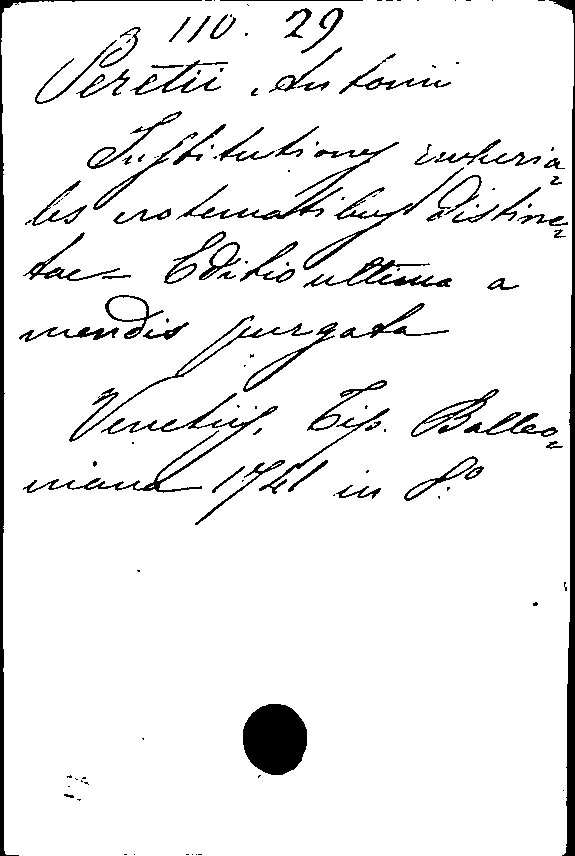 110. 29
Peretii Antonii
Institutiones imperia=
les erotematibus distinc=
tae = Editio ultima a
mendis purgata
Venetiis, Tip. Balleo=
niana 1741 in 8.º